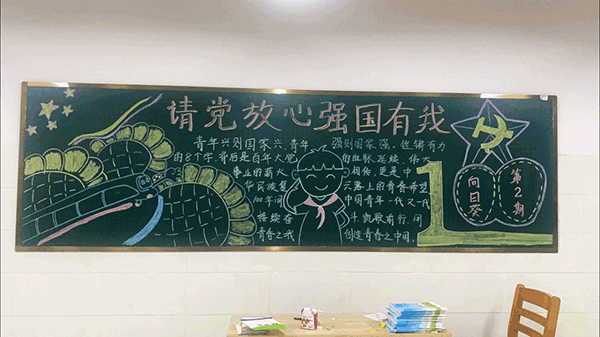 请党放心强国有我
青年兴则国家兴,青年
强则国家强。铿锵有力
的8个字,背后是百年大党
的血脉延续,伟大
事业的薪火
相传,更是中
华民族复
兴路上的青春希望
100年间
中国青年一代又一代
接续奋
斗、凯歌前行,用
青春之我
创造青春之中国。
1
向日葵
第2期